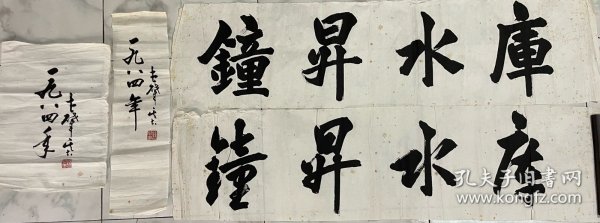 一九八四年
一九八四年
鐘昇水庫
鐘昇水庫
孔夫子旧书网
www.kongfz.com